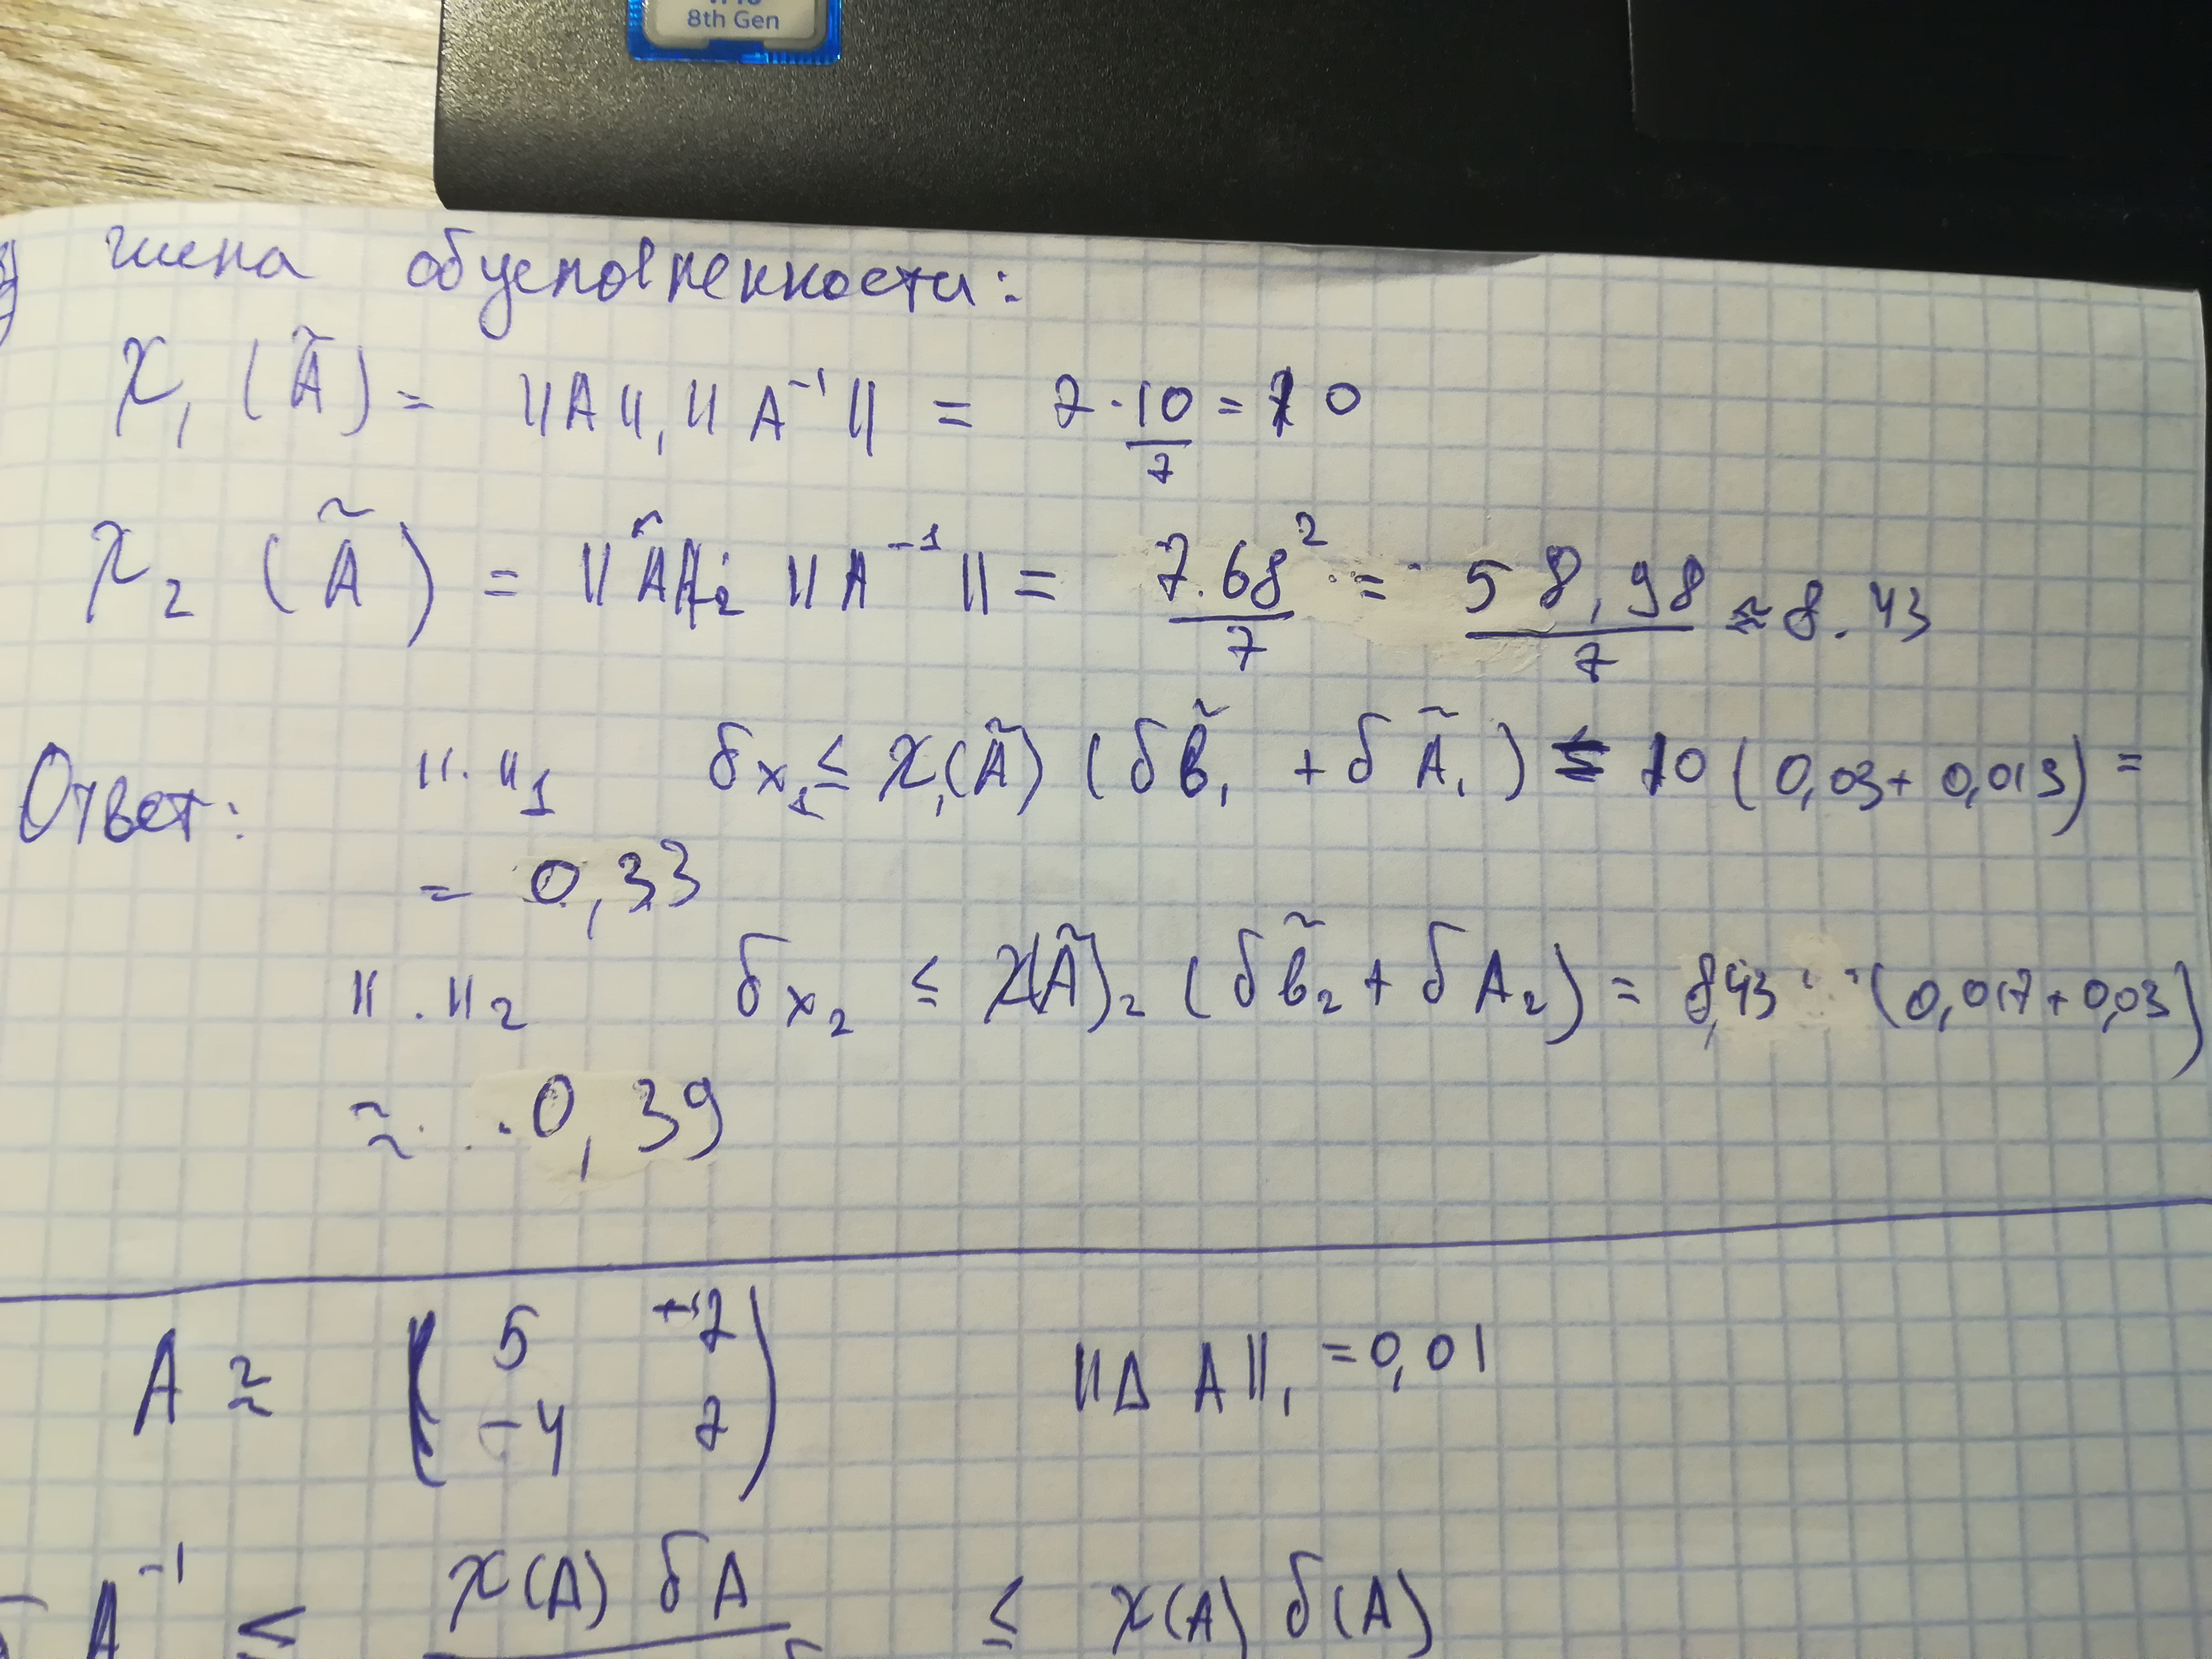 8th Gen
числа обусловленности:
ϰ₁ (Ã) = ||A||₁ ||A⁻¹|| = 7 · 10/7 = 10
ϰ₂ (Ã) = || ||₂ ||A⁻¹|| = 7.68²/7 = 58,98/7 ≈ 8.43
Ответ: ||·||₁ δx₁ ≤ ϰ₁(Ã) (δb̃₁ + δÃ₁) ≤ 10 (0,03 + 0,013) =
= 0,33
||·||₂ δx₂ ≤ ϰ(Ã)₂ (δb̃₂ + δA₂) = 8,43 (0,017 + 0,03)
≈ 0,39
A ≈ ( 5 +7 ; -4 7 ) ||Δ A||₁ = 0,01
A⁻¹ ≤ ϰ(A) δA ≤ ϰ(A) δ(A)